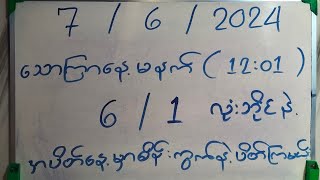 7 / 6 / 2024
သောကြာနေ့ မနက် ( 12:01 )
6 / 1 လုံးဘိုင်နဲ့
မှာပိတ်နေ့မှာစိန်းကွက်နဲ့ပိတ်ကြမယ်